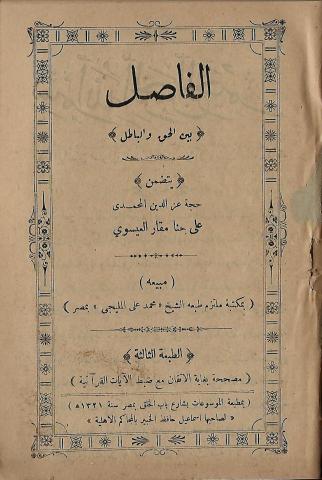 الفاصل
﴿ بين الحق والباطل ﴾
﴿ يتضمن ﴾
حجة عز الدين المحمدى
على حنا مقار العيسوي
( مبيعه )
( بمكتبة ملتزم طبعه الشيخ « محمد على المليجى » بمصر )
﴿ الطبعة الثالثة ﴾
( مصححة بغاية الاتقان مع ضبط الآيات القرآنية )
( بمطبعة الموسوعات بشارع باب الخلق بمصر سنة ١٣٢١ ه )
« لصاحبها اسماعيل حافظ الخبير بالمحاكم الاهلية »